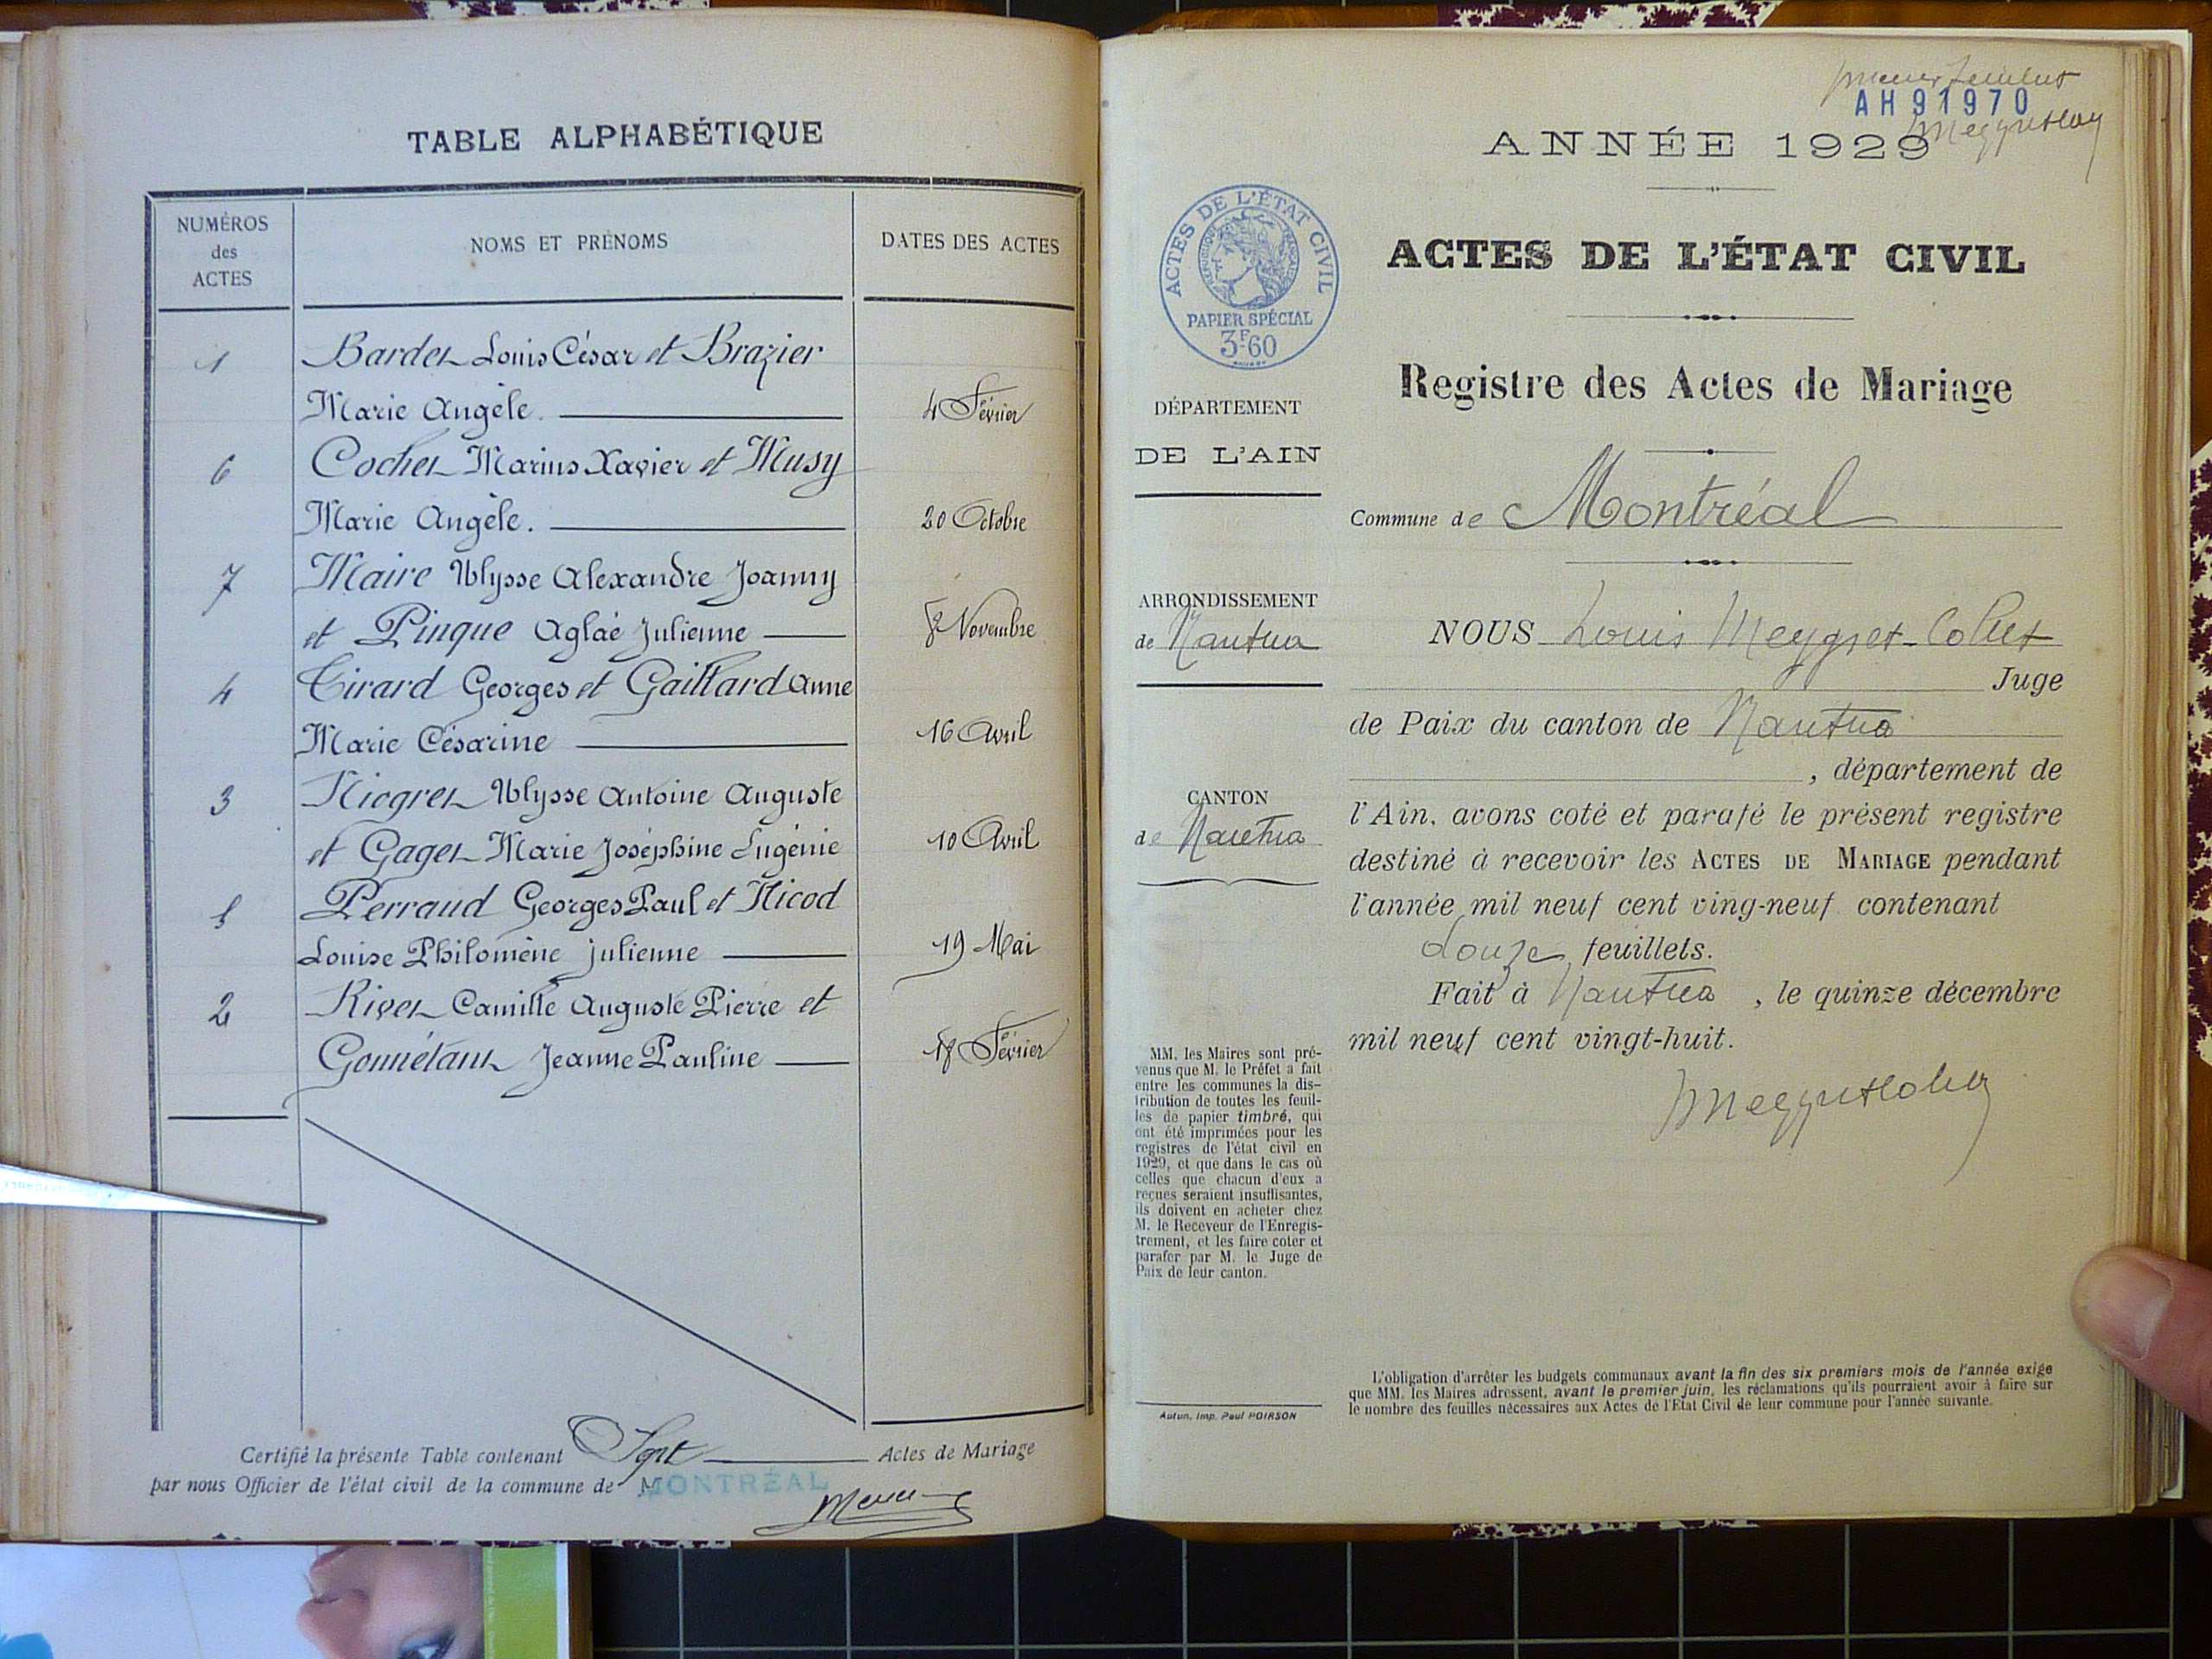 TABLE ALPHABÉTIQUE
NUMÉROS des ACTES
NOMS ET PRÉNOMS
DATES DES ACTES
1 Bardet Louis César et Brazier
Marie Angèle. 4 Février
6 Cochet Marius Xavier et Musy
Marie Angèle. 20 Octobre
7 Maire Ulysse Alexandre Joanny
et Pinque Aglaé Julienne 8 Novembre
4 Girard Georges et Gaillard Anne
Marie Césarine 16 Avril
3 Niogret Ulysse Antoine Auguste
et Gaget Marie Joséphine Eugénie 10 Avril
5 Perraud Georges Paul et Nicod
Louise Philomène Julienne 19 Mai
2 Rivet Camille Auguste Pierre et
Gonnétant Jeanne Pauline 18 Février
Certifié la présente Table contenant Sept Actes de Mariage
par nous Officier de l'état civil de la commune de MONTRÉAL
premier feuillet
AH 91970
ANNÉE 1929
ACTES DE L'ÉTAT CIVIL
RÉPUBLIQUE FRANÇAISE
PAPIER SPÉCIAL
3F60
ACTES DE L'ÉTAT CIVIL
Registre des Actes de Mariage
DÉPARTEMENT
DE L'AIN
Commune de Montréal
ARRONDISSEMENT
de Nantua
CANTON
de Nantua
NOUS Louis Meygret-Collet
Juge
de Paix du canton de Nantua
, département de
l'Ain, avons coté et parafé le présent registre
destiné à recevoir les ACTES DE MARIAGE pendant
l'année mil neuf cent ving-neuf contenant
douze feuillets.
Fait à Nantua, le quinze décembre
mil neuf cent vingt-huit.
MM. les Maires sont pré-
venus que M. le Préfet a fait
entre les communes la dis-
tribution de toutes les feuil-
les de papier timbré, qui
ont été imprimées pour les
registres de l'état civil en
1929, et que dans le cas où
celles que chacun d'eux a
reçues seraient insuffisantes,
ils doivent en acheter chez
M. le Receveur de l'Enregis-
trement, et les faire coter et
parafer par M. le Juge de
Paix de leur canton.
Autun, Imp. Paul POIRSON
L'obligation d'arrêter les budgets communaux avant la fin des six premiers mois de l'année exige
que MM. les Maires adressent, avant le premier juin, les réclamations qu'ils pourraient avoir à faire sur
le nombre des feuilles nécessaires aux Actes de l'Etat Civil de leur commune pour l'année suivante.